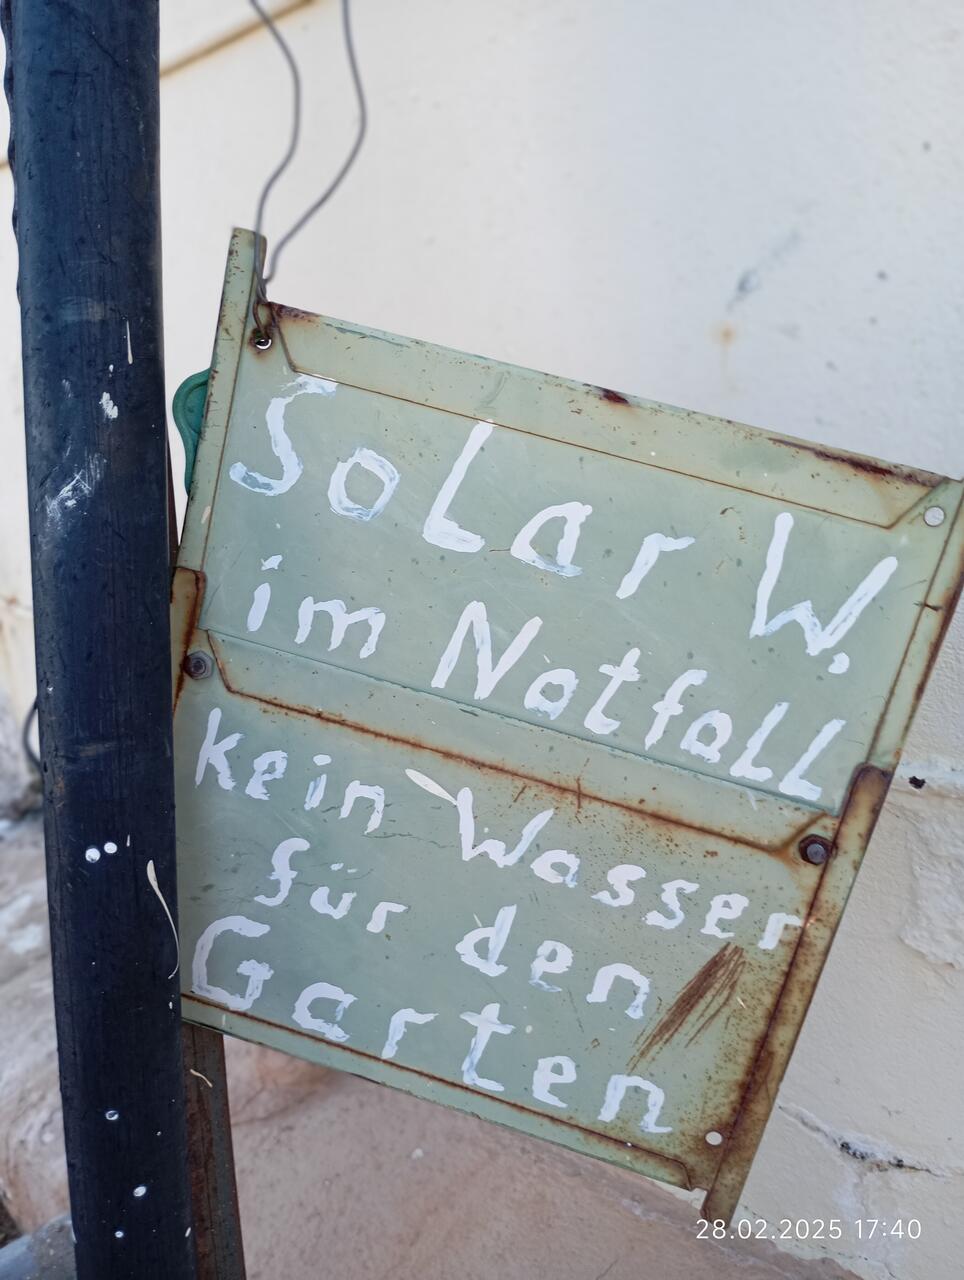 SoLar W.
im Notfall
kein Wasser
für den
Garten
28.02.2025 17:40